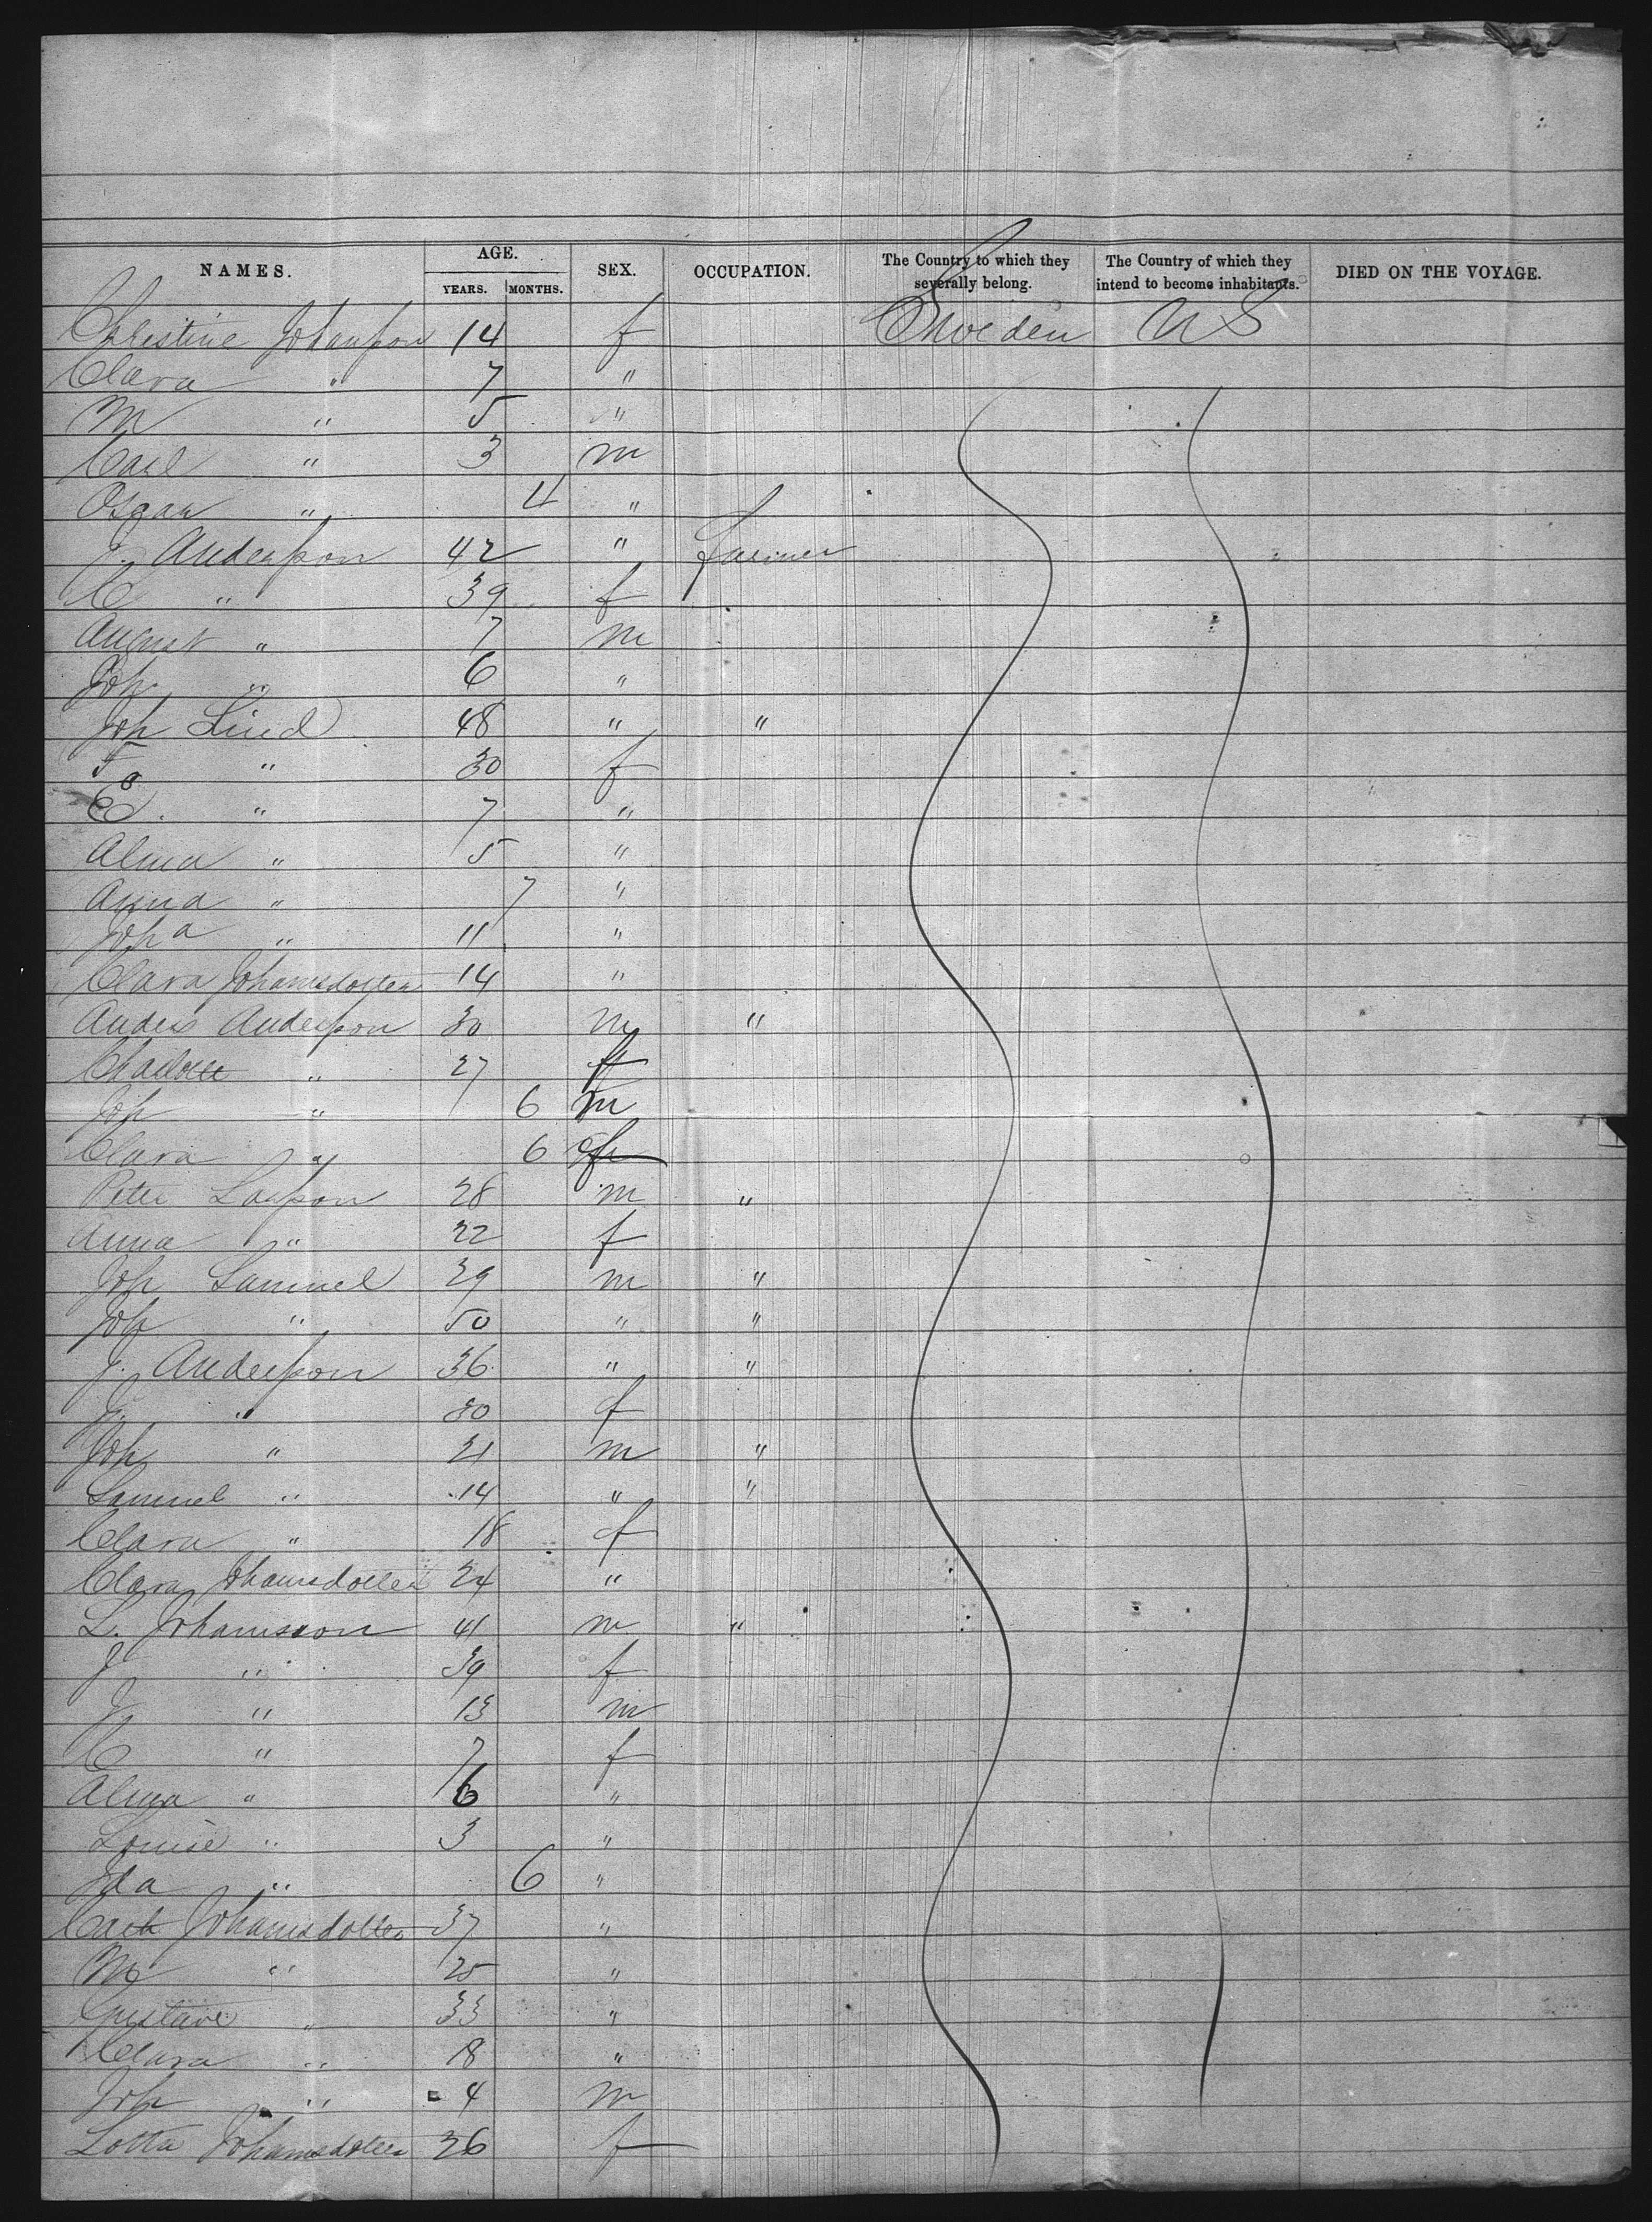 NAMES. AGE. YEARS. MONTHS. SEX. OCCUPATION. The Country to which they severally belong. The Country of which they intend to become inhabitants. DIED ON THE VOYAGE.
Christine Johansson 14 f Sweden US
Clara " 7 "
M " 5 "
Carl " 3 m
Oscar " 4 "
J. Andersson 42 " Farmer
C " 39 f
August " 7 m
Joh. " 6 "
Joh Lind 48 " "
F " 30 f
E. " 7 "
Alma " 5 "
Anna " 7 "
Joh a " 11 "
Clara Johannsdotter 14 "
Anders Andersson 30 m "
Charlotte " 27 f
Joh " 6 m
Clara " 6 f
Peter Larsson 28 m "
Anna " 22 f
Joh Samuel 29 m "
Joh " 50 " "
J. Andersson 36 " "
J. " 30 f
Joh " 21 m "
Samuel " 14 " "
Clara " 18 f
Clara Johannsdotter 24 "
L. Johannsson 41 m "
J " 39 f
J " 13 m
C " 7 f
Alma " 6 "
Louise " 3 "
Ida " 6 "
Cath Johannsdotter 37 "
M " 25 "
Gustave " 33 "
Clara " 18 "
Joh " 4 m
Lotta Johannsdotter 26 f